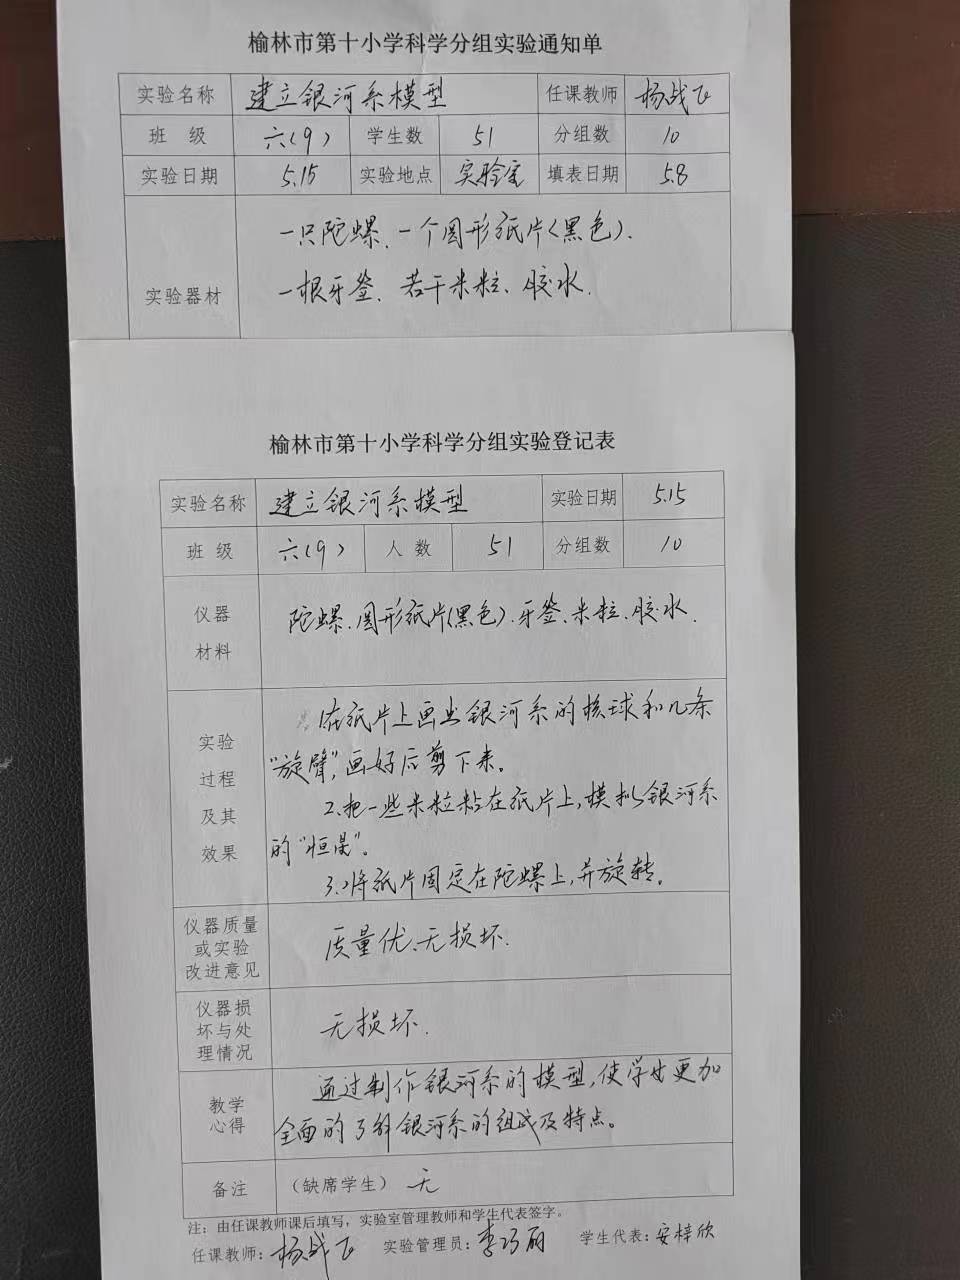 榆林市第十小学科学分组实验通知单
实验名称 建立银河系模型 任课教师 杨战飞
班 级 六(9) 学生数 51 分组数 10
实验日期 5.15 实验地点 实验室 填表日期 5.8
一只陀螺、一个圆形纸片(黑色).
实验器材 一根牙签、若干米粒、胶水.
榆林市第十小学科学分组实验登记表
实验名称 建立银河系模型 实验日期 5.15
班 级 六(9) 人 数 51 分组数 10
仪器
材料
陀螺、圆形纸片(黑色)、牙签、米粒、胶水.
实验
过程
及其
效果
1.在纸片上画出银河系的核球和几条
“旋臂”,画好后剪下来。
2.把一些米粒粘在纸片上,模拟银河系
的“恒星”。
3.将纸片固定在陀螺上,并旋转。
仪器质量
或实验
改进意见
质量优、无损坏.
仪器损
坏与处
理情况
无损坏.
教学
心得
通过制作银河系的模型,使学生更加
全面的了解银河系的组成及特点。
备注 (缺席学生) 无
注:由任课教师课后填写,实验室管理教师和学生代表签字。
任课教师:杨战飞 实验管理员:李巧丽 学生代表:安梓欣